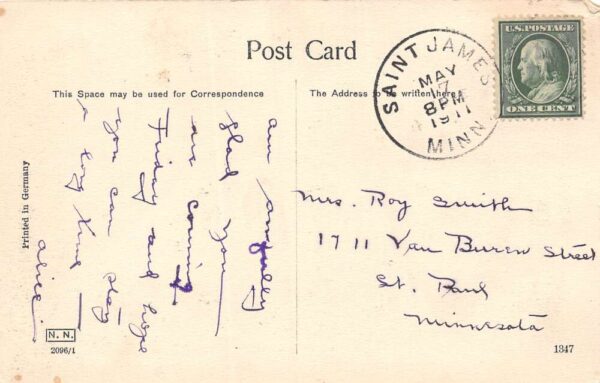 Post Card
This Space may be used for Correspondence
The Address to be written here
U.S. POSTAGE
ONE CENT
SAINT JAMES
MAY
17
8PM
1911
MINN.
am awfully
glad you
are coming
Friday and hope
you can stay
a long time
Alice.
Mrs. Roy Smith
1711 Van Buren Street
St. Paul
Minnesota
Printed in Germany
N. N.
2096/1
1347